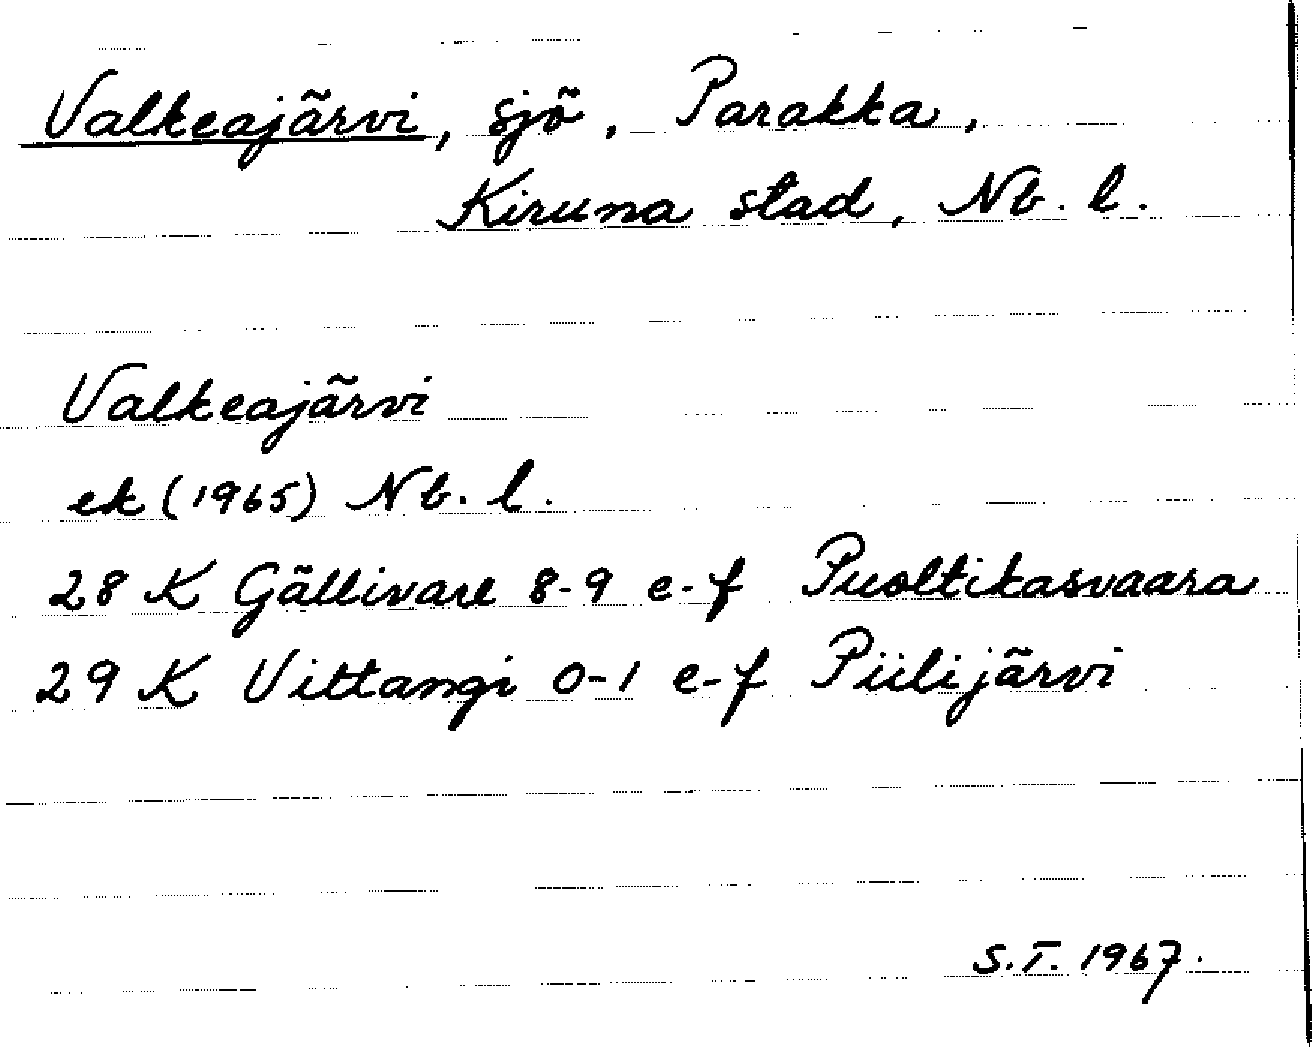 Valkeajärvi, sjö, Parakka,
Kiruna stad, Nb. l.
Valkeajärvi
ek (1965) Nb. l.
28 K Gällivare 8-9 e-f Puoltikasvaara
29 K Vittangi 0-1 e-f Piilijärvi
S.T. 1967.